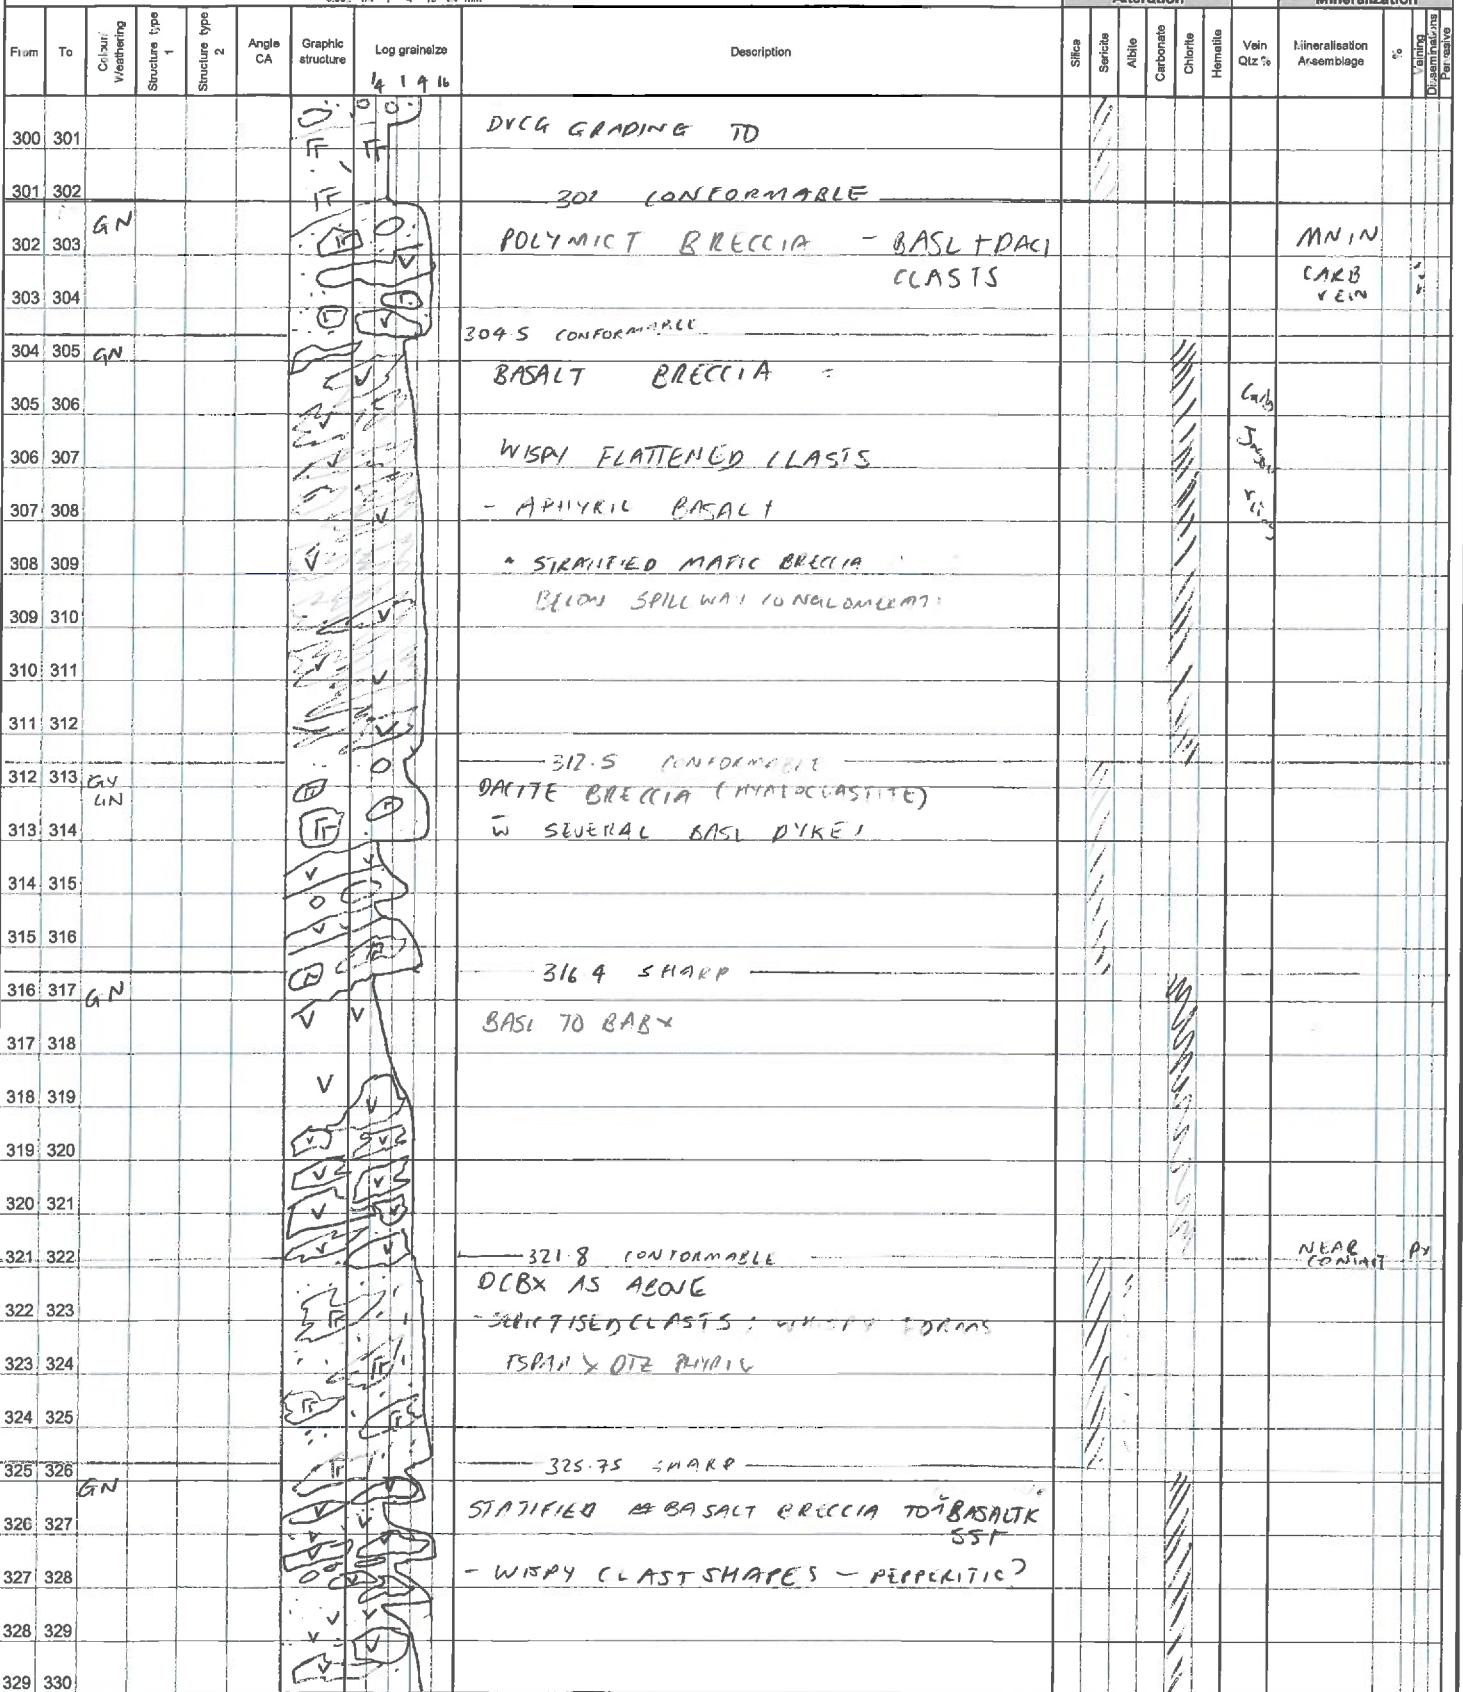 Alteration
Mineralization
From To Colour/ Weathering Structure type 1 Structure type 2 Angle CA Graphic structure Log grainsize Description Silica Sericite Albite Carbonate Chlorite Hematite Vein Qtz % Mineralisation Assemblage % Veining Disseminations Pervasive
1/4 1 4 16
300 301 DVCG GRADING TO
301 302 302 CONFORMABLE
302 303 GN POLYMICT BRECCIA - BASL + DACI MNIN
CLASTS CARB
303 304 VEIN
304.5 CONFORMABLE
304 305 GN BASALT BRECCIA =
305 306 Carb
306 307 WISPY FLATTENED CLASTS
307 308 - APHYRIC BASALT
308 309 * STRATIFIED MAFIC BRECCIA
309 310 BELOW SPILLWAY CONGLOMERATE
310 311
311 312
312.5 CONFORMABLE
312 313 GY DACITE BRECCIA (HYALOCLASTITE)
GN
313 314 w̄ SEVERAL BASL DYKES
314 315
315 316
316.4 SHARP
316 317 GN
317 318 BASL TO BABX
318 319
319 320
320 321
321 322 321.8 CONFORMABLE NEAR CONTACT Py
DCBX AS ABOVE
322 323 - SERICTISED CLASTS : WHISPY FORMS
323 324 QTZ PHYRIC
324 325
325 326 325.75 SHARP
GN
326 327 STATIFIED BASALT BRECCIA TO BASALTIC
SST
327 328 - WISPY CLAST SHAPES - PEPPERITIC?
328 329
329 330